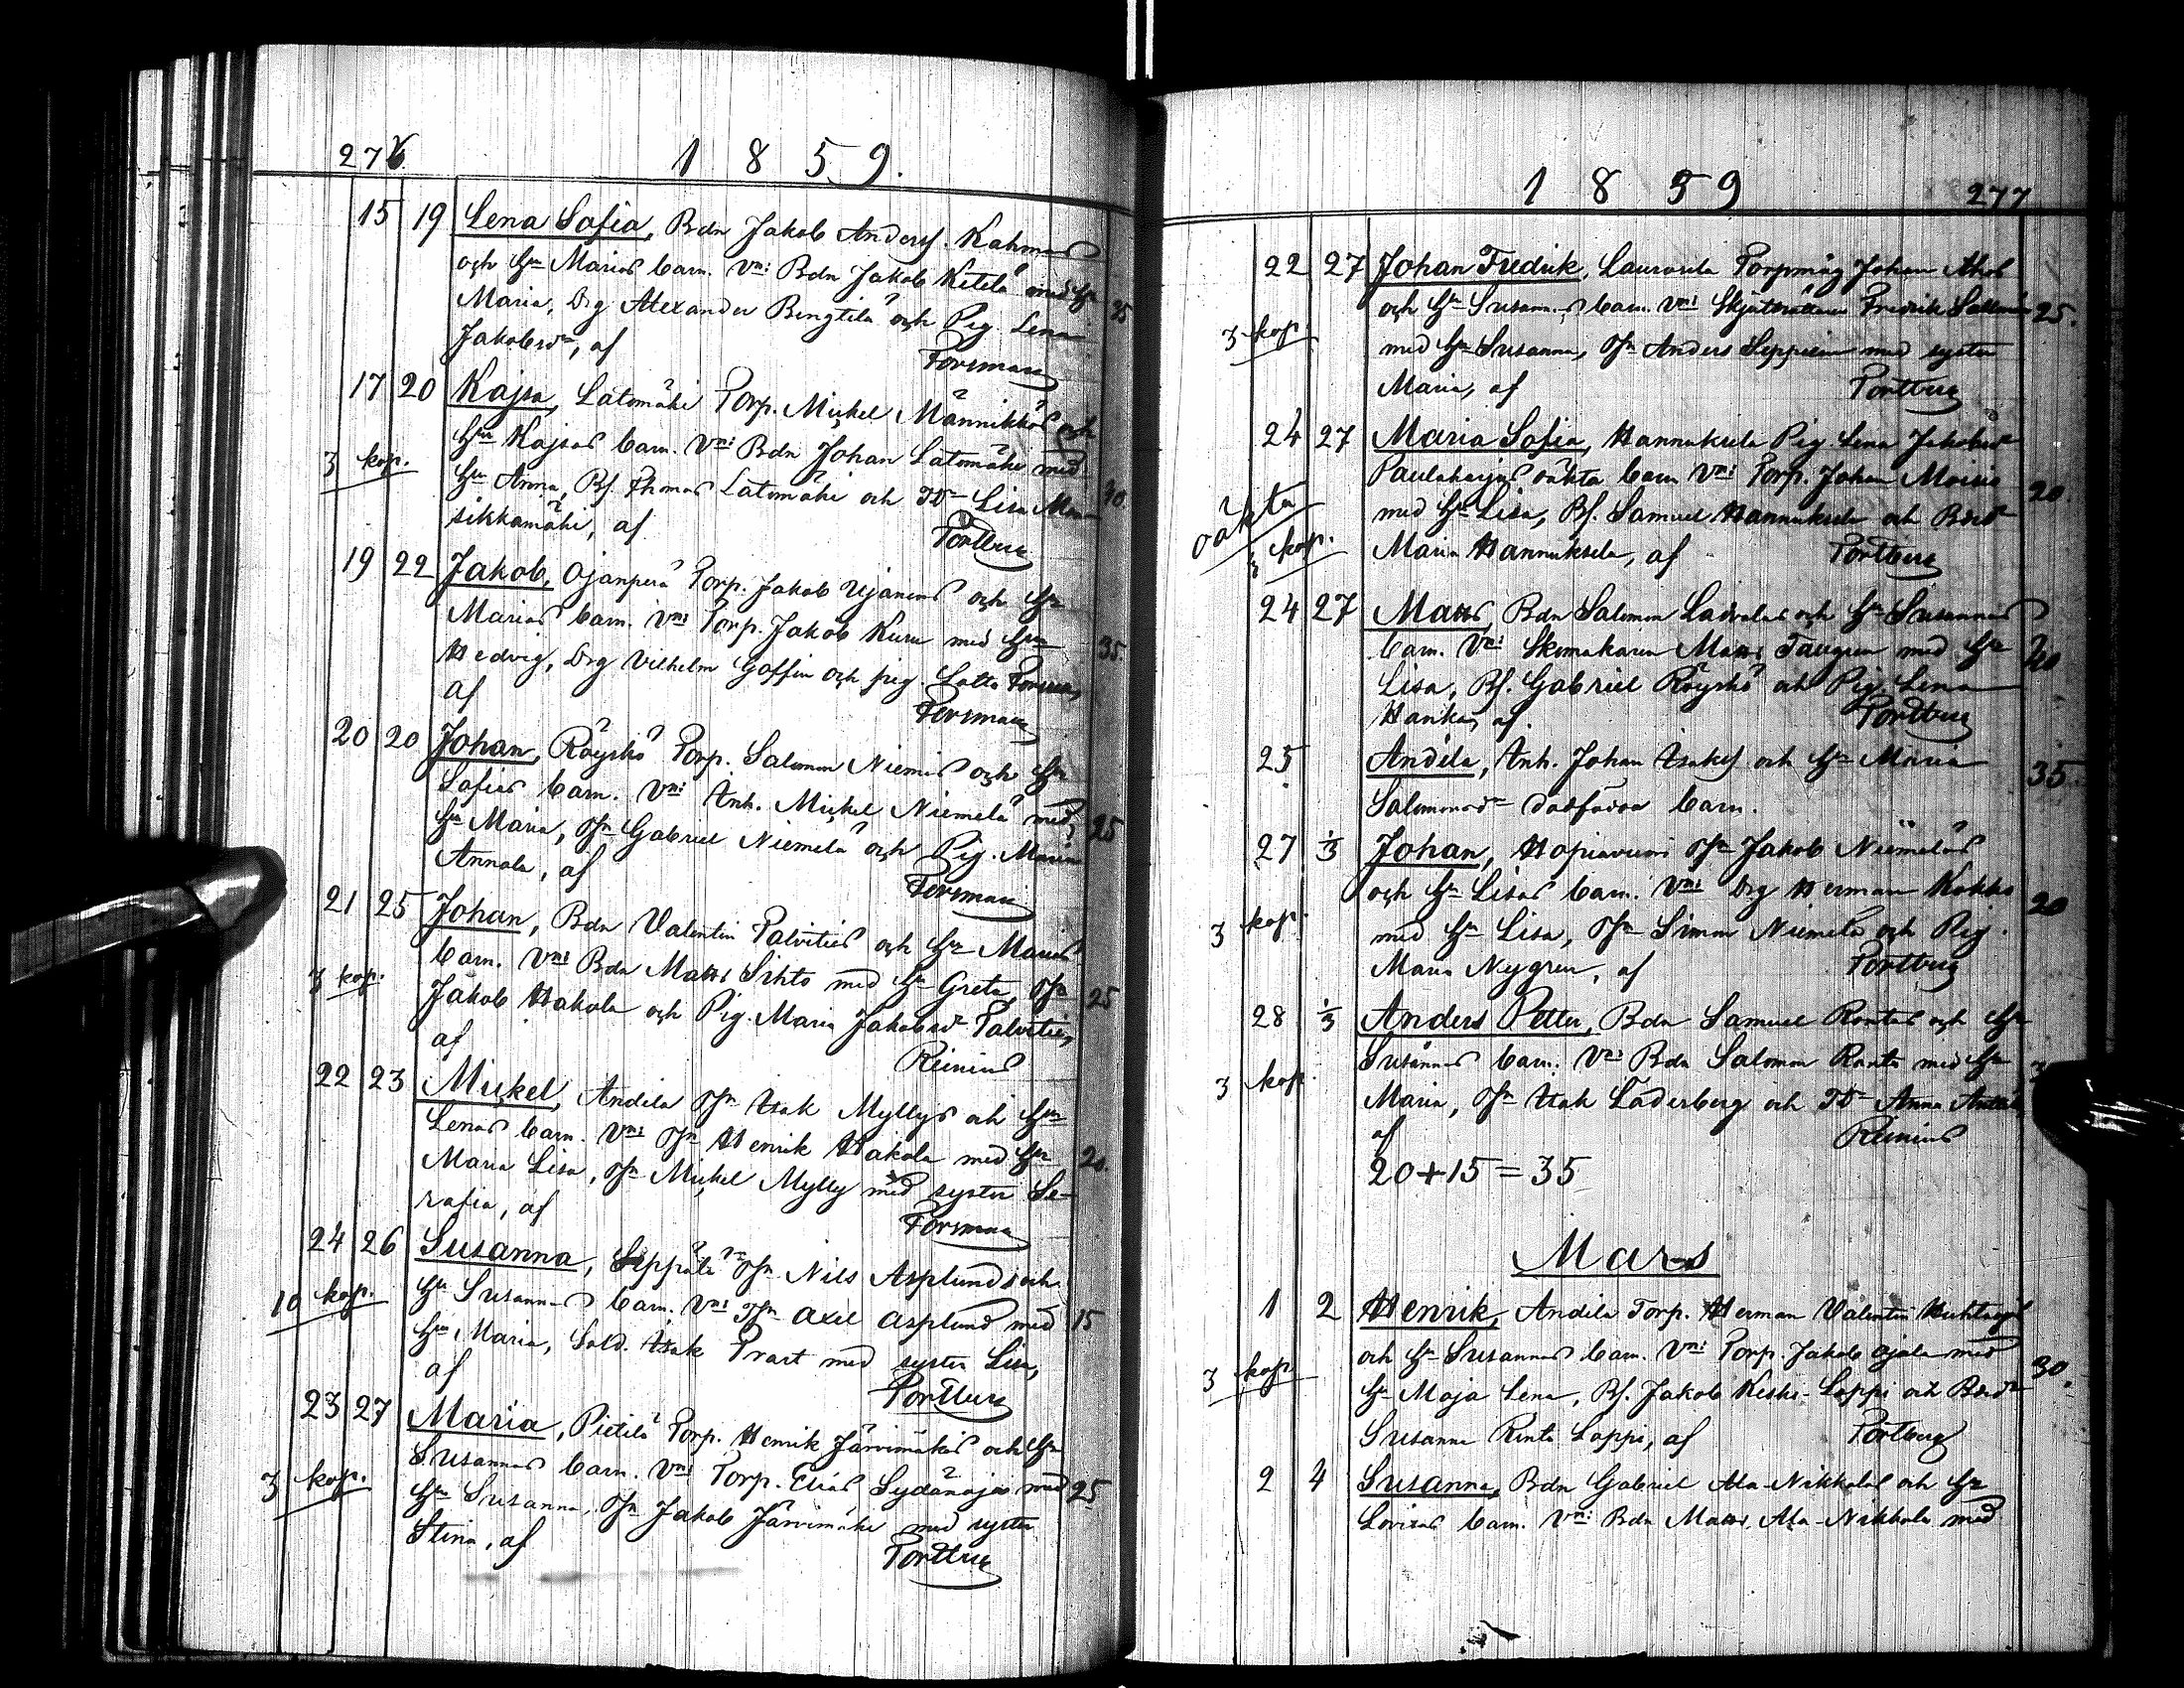 276. 1 8 5 9.
15 19 Lena Sofia, Bdn Jakob Anderss. Kahmas
och Hu Marias barn. Vn: Bdn Jakob Ketelä med Hu 25
Maria, Drg Alexander Bengtilä och Pig. Lena
Jakobsdr, af Forsman
17 20 Kajsa, Latomäki Torp. Mickel Männikkös och
Hu Kajsas barn. Vn: Bdn Johan Latomäki med
3 kop. Hu Anna, Bs. Thomas Latomäki och Dr Lisa Man- 30.
sikkamäki, af Portberg
19 22 Jakob, Ojanperä Torp. Jakob Ujanens och Hu
Marias barn. Vn: Torp. Jakob Kuru med Hu 35
Hedvig, Drg Vilhelm Goffin och pig. Lotta
af Forsman
20 20 Johan, Röyskö Torp. Salomon Niemis och Hu
Sofias barn. Vn: Inh. Mickel Niemelä med 25
Hu Maria, Gabriel Niemelä och Pig. Maria
Annala, af Forsman
21 25 Johan, Bdn Valentin Palvities och Hu Marias
barn. Vn: Bdn Matts Sihto med Hu Greta, 25
3 kop. Jakob Hakola och Pig. Maria Jakobsdr Palvitie,
af Reinius
22 23 Mickel, Andila Isak Myllys och Hu
Lenas barn. Vn: Henrik Hakola med Hu 20.
Maria Lisa, Mickel Mylly med syster Se-
rafia, af Forsman
24 26 Susanna, Seppälä Nils Asplunds och
10 kop. Hu Susannas barn. Vn: Axel Asplund med 15
Hu Maria, Sold. Isak Trast med syster Lisa,
af Portberg
23 27 Maria, Pietilä Torp. Henrik Järvimäkis och Hu
Susannas barn. Vn: Torp. Elias Sydänoja med 25
3 kop. Hu Susanna, Jakob Järvimäki med syster
Stina, af Portberg
1 8 5 9 277
22 27 Johan Fredrik, Laurosela Torpmåg Johan
och Hu Susannas barn. Vn: Fredrik 25.
3 kop. med Hu Susanna, Anders med syster
Maria, af Portberg
24 27 Maria Sofia, Hannuksela Pig. Lena Jakobsdr
Paulaharjus oäkta barn Vn: Torp. Johan Moisio 20.
oäkta med Hu Lisa, Bs. Samuel Hannuksela och Bdr
3 kop. Maria Hannuksela, af Portberg
24 27 Matts, Bdn Salomon Ladvalas och Hu Susannas
barn. Vn: Skomakaren Matts Taugren med Hu 40
Lisa, Bs. Gabriel Röyskö och Pig. Lena
Hanka, af Portberg
25 Andila, Inh. Johan Isaks och Hu Maria 35
Salomonsdr dödfödda barn.
27 1/3 Johan, Hopiavuori Jakob Niemeläs
och Hu Lisas barn. Vn: Drg Herman Kokko 20
3 kop. med Hu Lisa, Simon Niemelä och Pig.
Maria Nygren, af Portberg
28 1/3 Anders Petter, Bdn Samuel Rantas och Hu
Susannas barn. Vn: Bdn Salomon Ranta med Hu
3 kop. Maria, Isak Laderberg och Dr Anna
af Reinius
20+15=35
Mars
1 2 Henrik, Andila Torp. Herman Valentin
och Hu Susannas barn. Vn: Torp. Jakob Ojala med 30.
3 kop. Hu Maja Lena, Bs. Jakob Keski-Loppi och Bdr
Susanna Rinta Loppi, af Portberg
2 4 Susanna, Bdn Gabriel Ala-Nikkolas och Hu
Lovisas barn. Vn: Bdn Matts Ala-Nikkola med